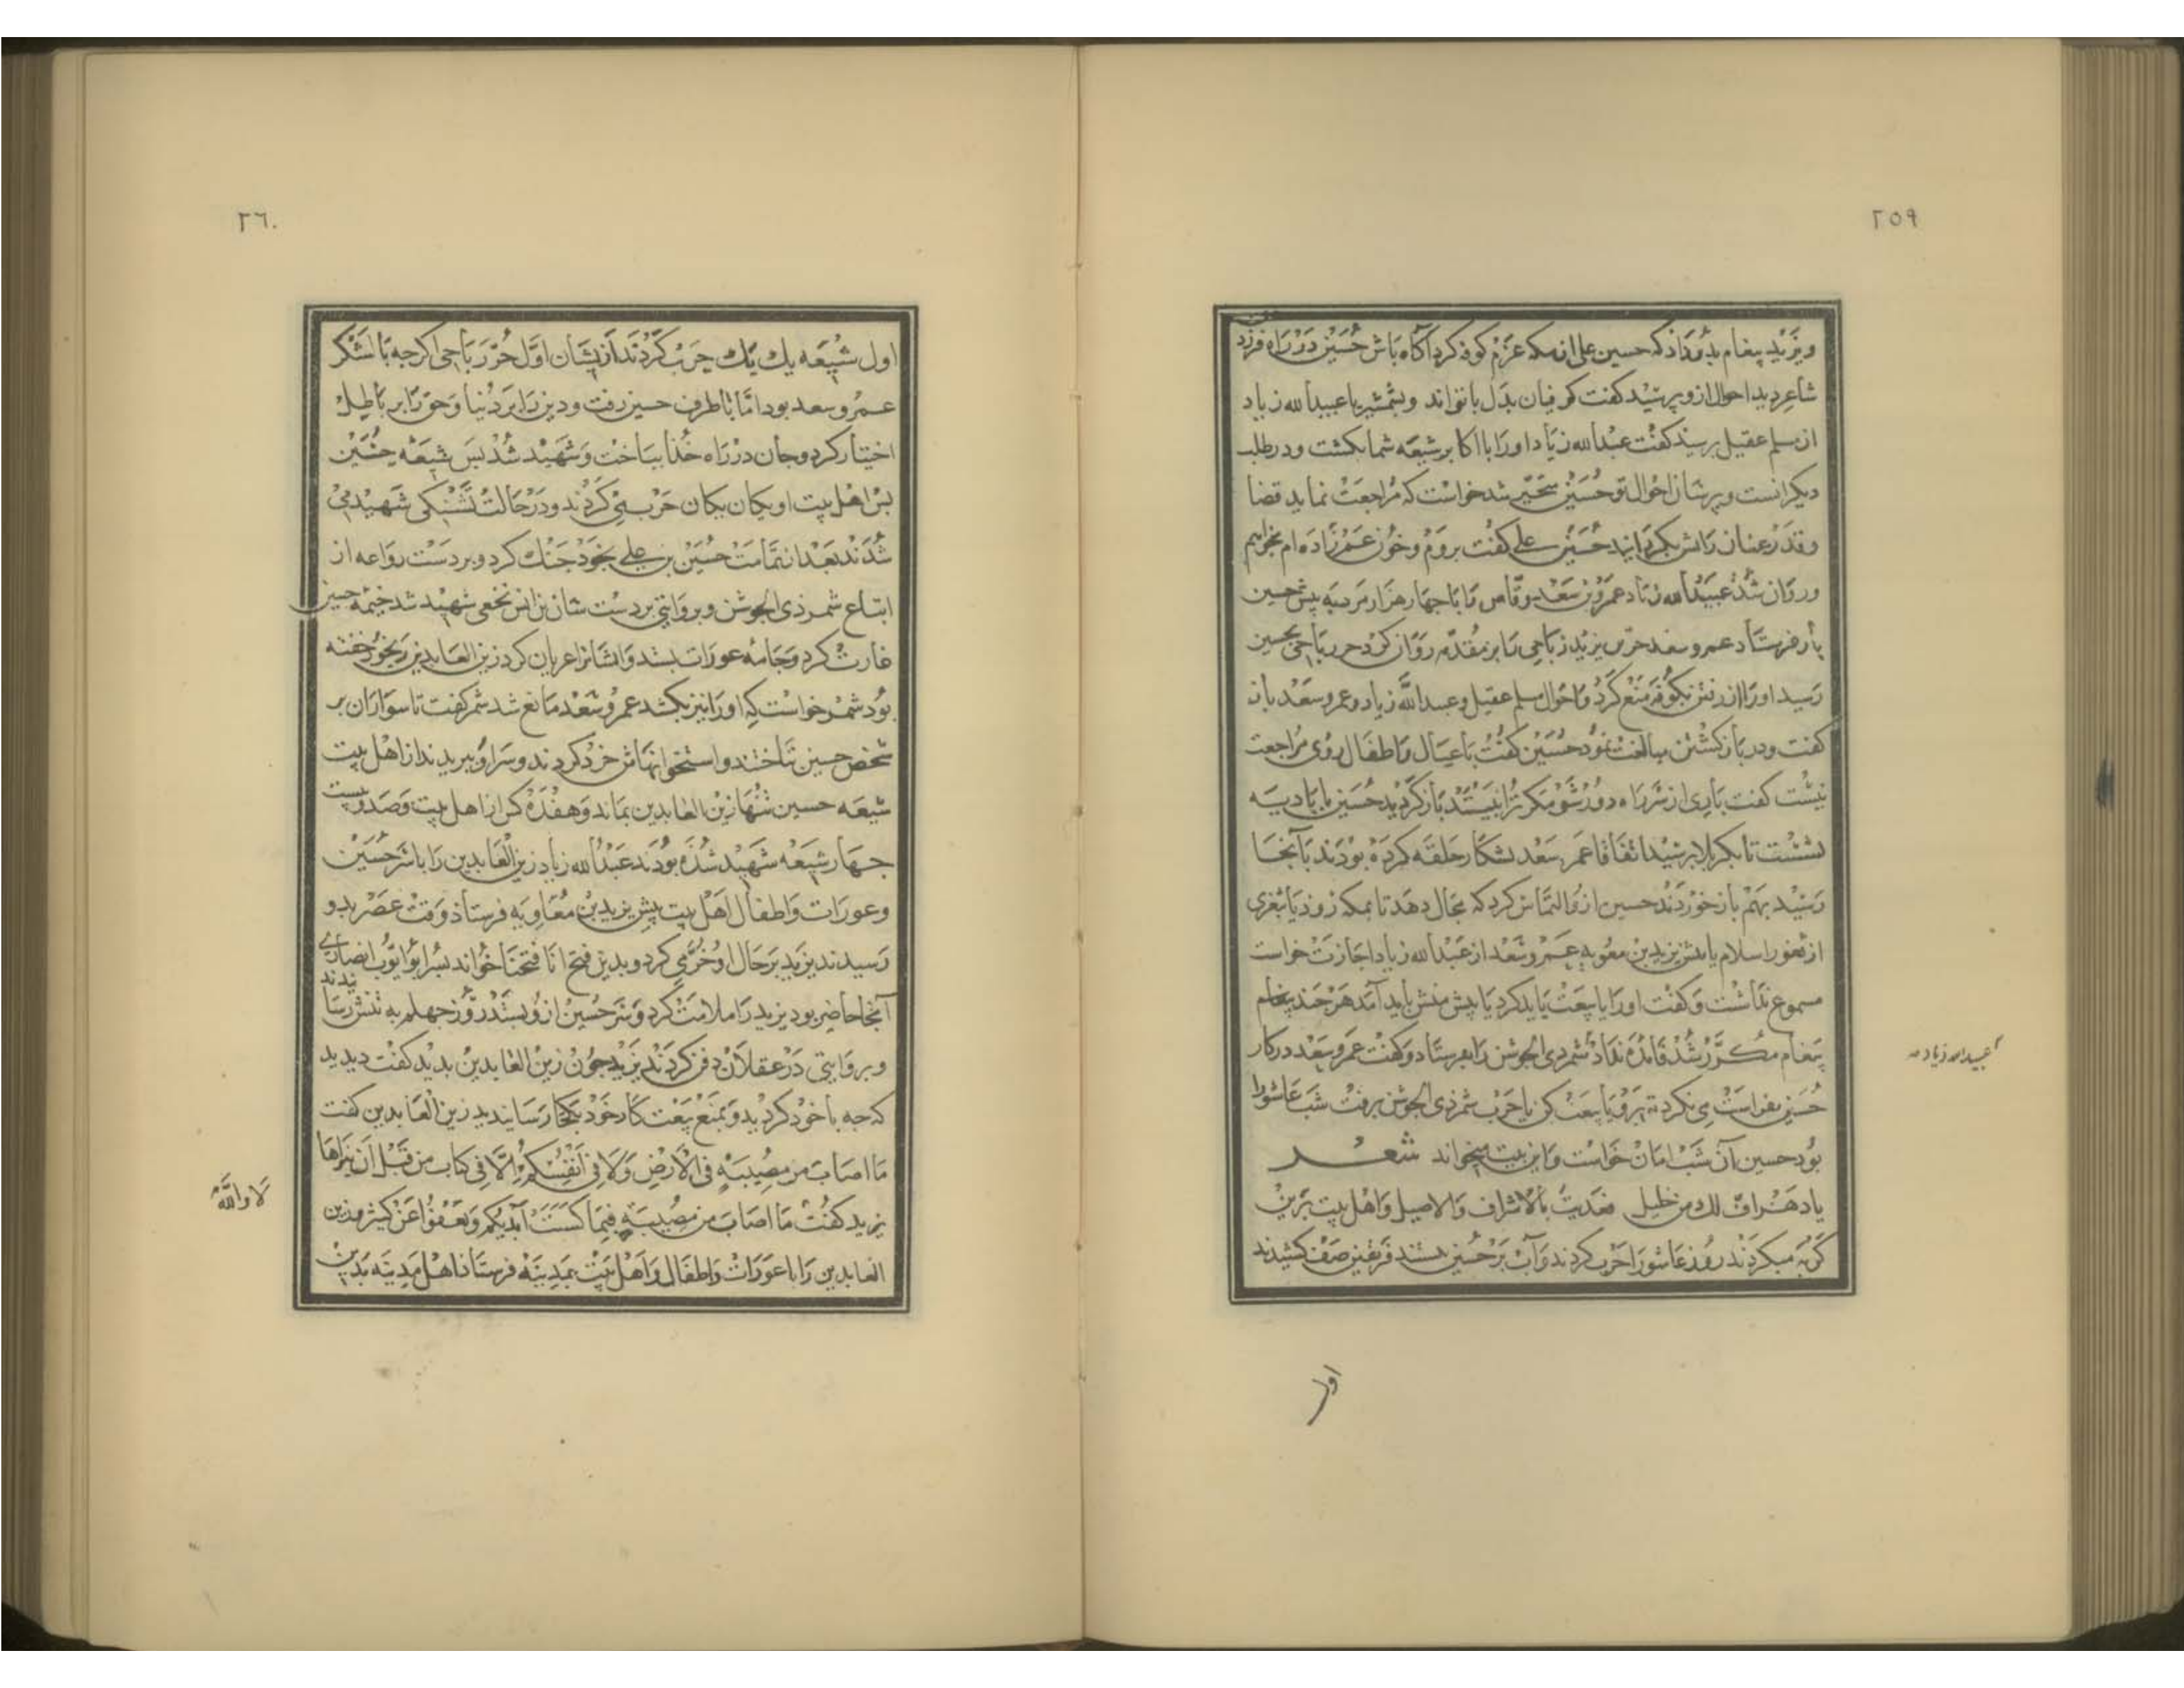 ٢٥٩
ويزيد پيغام بدو داد كه حسين على از مكه عزم كوفه كرد آكاه باش حسين در راه فرزد
شاعر ديد احوال ازو پرسيد كفت كوفيان بدل با تواند وبشمشير با عبيدالله زياد
از مسلم عقيل پرسيد كفت عبدالله زياد اورا با اكابر شيعه شما بكشت ودر طلب
ديكرانست وپريشان احوال تو حسين متحير شد خواست كه مراجعت نمايد قضا
وقدر عنانرا بكردانيد حسين على كفت بروم وخون عم زاده ام بخواهم
وروان شد عبيدالله زياد عمرو بن سعد وقاص را با جهار هزار مرد به پيش حسين
باز فرستاد عمرو سعد حر بن يزيد رباحى را بر مقدمه روان كرد حر رباحى بحسين
رسيد اورا از رفتن بكوفه منع كرد واحوال مسلم عقيل وعبيدالله زياد وعمرو سعد باز
كفت ودر باز كشتن مبالغت نمود حسين كفت با عيال واطفال روى مراجعت
نيست كفت بارى از سر راه دور شو مكر ترا نبينند باز كرديد حسين با باديه
نشست تا بكربلا رسيد اتفاقا عمر سعد بشكار حلقه كرده بودند با آنجا
رسيد بهم باز خوردند حسين ازو التماس كرد كه مجال دهد تا بمكه رود يا بثغرى
از ثغور اسلام يا پيش يزيد بن معويه عمرو سعد از عبدالله زياد اجازت خواست
مسموع نداشت وكفت اورا يا بيعت بايد كرد يا پيش منش بايد آمد هرجند پيغام
پيغام مكرر شد فايده نداد شمر ذى الجوشن را بفرستاد وكفت عمرو سعد در كار
عبيدالله زياد
حسين بفراست مى نكرد تو برو يا بيعت كن يا حرب شمر ذى الجوشن برفت شب عاشورا
بود حسين آن شب امان خواست واين بيت ميخواند شعر
يا دهر اف لك من خليل فقديت بالاشراف والاصيل واهل بيت برين
كريه ميكردند روز عاشورا حرب كردند وآب بر حسين بستند فريقين صف كشيدند
اول
٢٦٠
اول شيعه يك يك حرب كردند از يشان اول حر رباحى اكرجه با لشكر
عمرو سعد بود اما با طرف حسين رفت ودين را بر دنيا وحق را بر باطل
اختيار كرد وجان در راه خدا بباخت وشهيد شد پس شيعه حسين
پس اهل بيت او يكان يكان حرب مى كردند ودر حالت تشنكى شهيد مى
شدند بعد از تمامت حسين بن على بخود جنك كرد وبر دست رواعه از
اتباع شمر ذى الجوشن وبروايتى بر دست سنان بن انس نخعى شهيد شد خيمه حسين
غارت كرد وجامه عورات بستد وايشانرا عريان كرد زين العابدين رنجور خفته
بود شمر خواست كه اورا نيز بكشد عمرو سعد مانع شد شمر كفت تا سواران بر
شخص حسين تاختند واستخوانهاش خرد كردند وسر او ببريدند از اهل بيت
شيعه حسين تنها زين العابدين بماند وهفده كس از اهل بيت وصد وبيست
جهار شيعه شهيد شده بودند عبدالله زياد زين العابدين را با سر حسين
وعورات واطفال اهل بيت پيش يزيد بن معاويه فرستاد وقت عصر بدو
رسيدند يزيد بر حال او خرمى كرد وبدين فتح انا فتحنا خواند پسر ابو ايوب انصارى
آنجا حاضر بود يزيد را ملامت كرد وسر حسين ازو بستد روز جهلم به تنش رسانيدند
وبروايتى در عقلان دفن كردند يزيد جون زين العابدين بديد كفت ديديد
كه جه با خود كرديد وبمنع بيعت كار خود بكجا رسانيديد زين العابدين كفت
لا والله
ما اصاب من مصيبة فى الارض ولا فى انفسكم الا فى كتاب من قبل ان نبراها
يزيد كفت ما اصاب من مصيبة فبما كسبت ايديكم ويعفوا عن كثير وزين
العابدين را با عورات واطفال واهل بيت بمدينه فرستاد اهل مدينه بدين